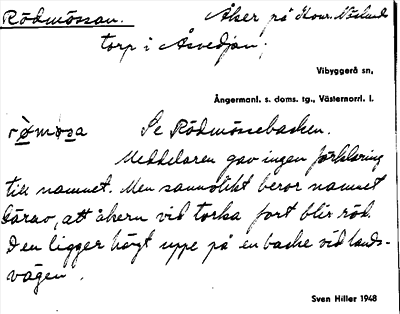 Rödmössan. Åker på Konr. Näslunds
torp i Åsvedjan;
Vibyggerå sn,
Ångermanl. s. doms. tg., Västernorrl. l.
Se Rödmössebacken.
Meddelaren gav ingen förklaring
till namnet. Men sannolikt beror namnet
därav, att åkern vid torka fort blir röd.
Den ligger högt uppe på en backe vid lands-
vägen.
Sven Hiller 1948